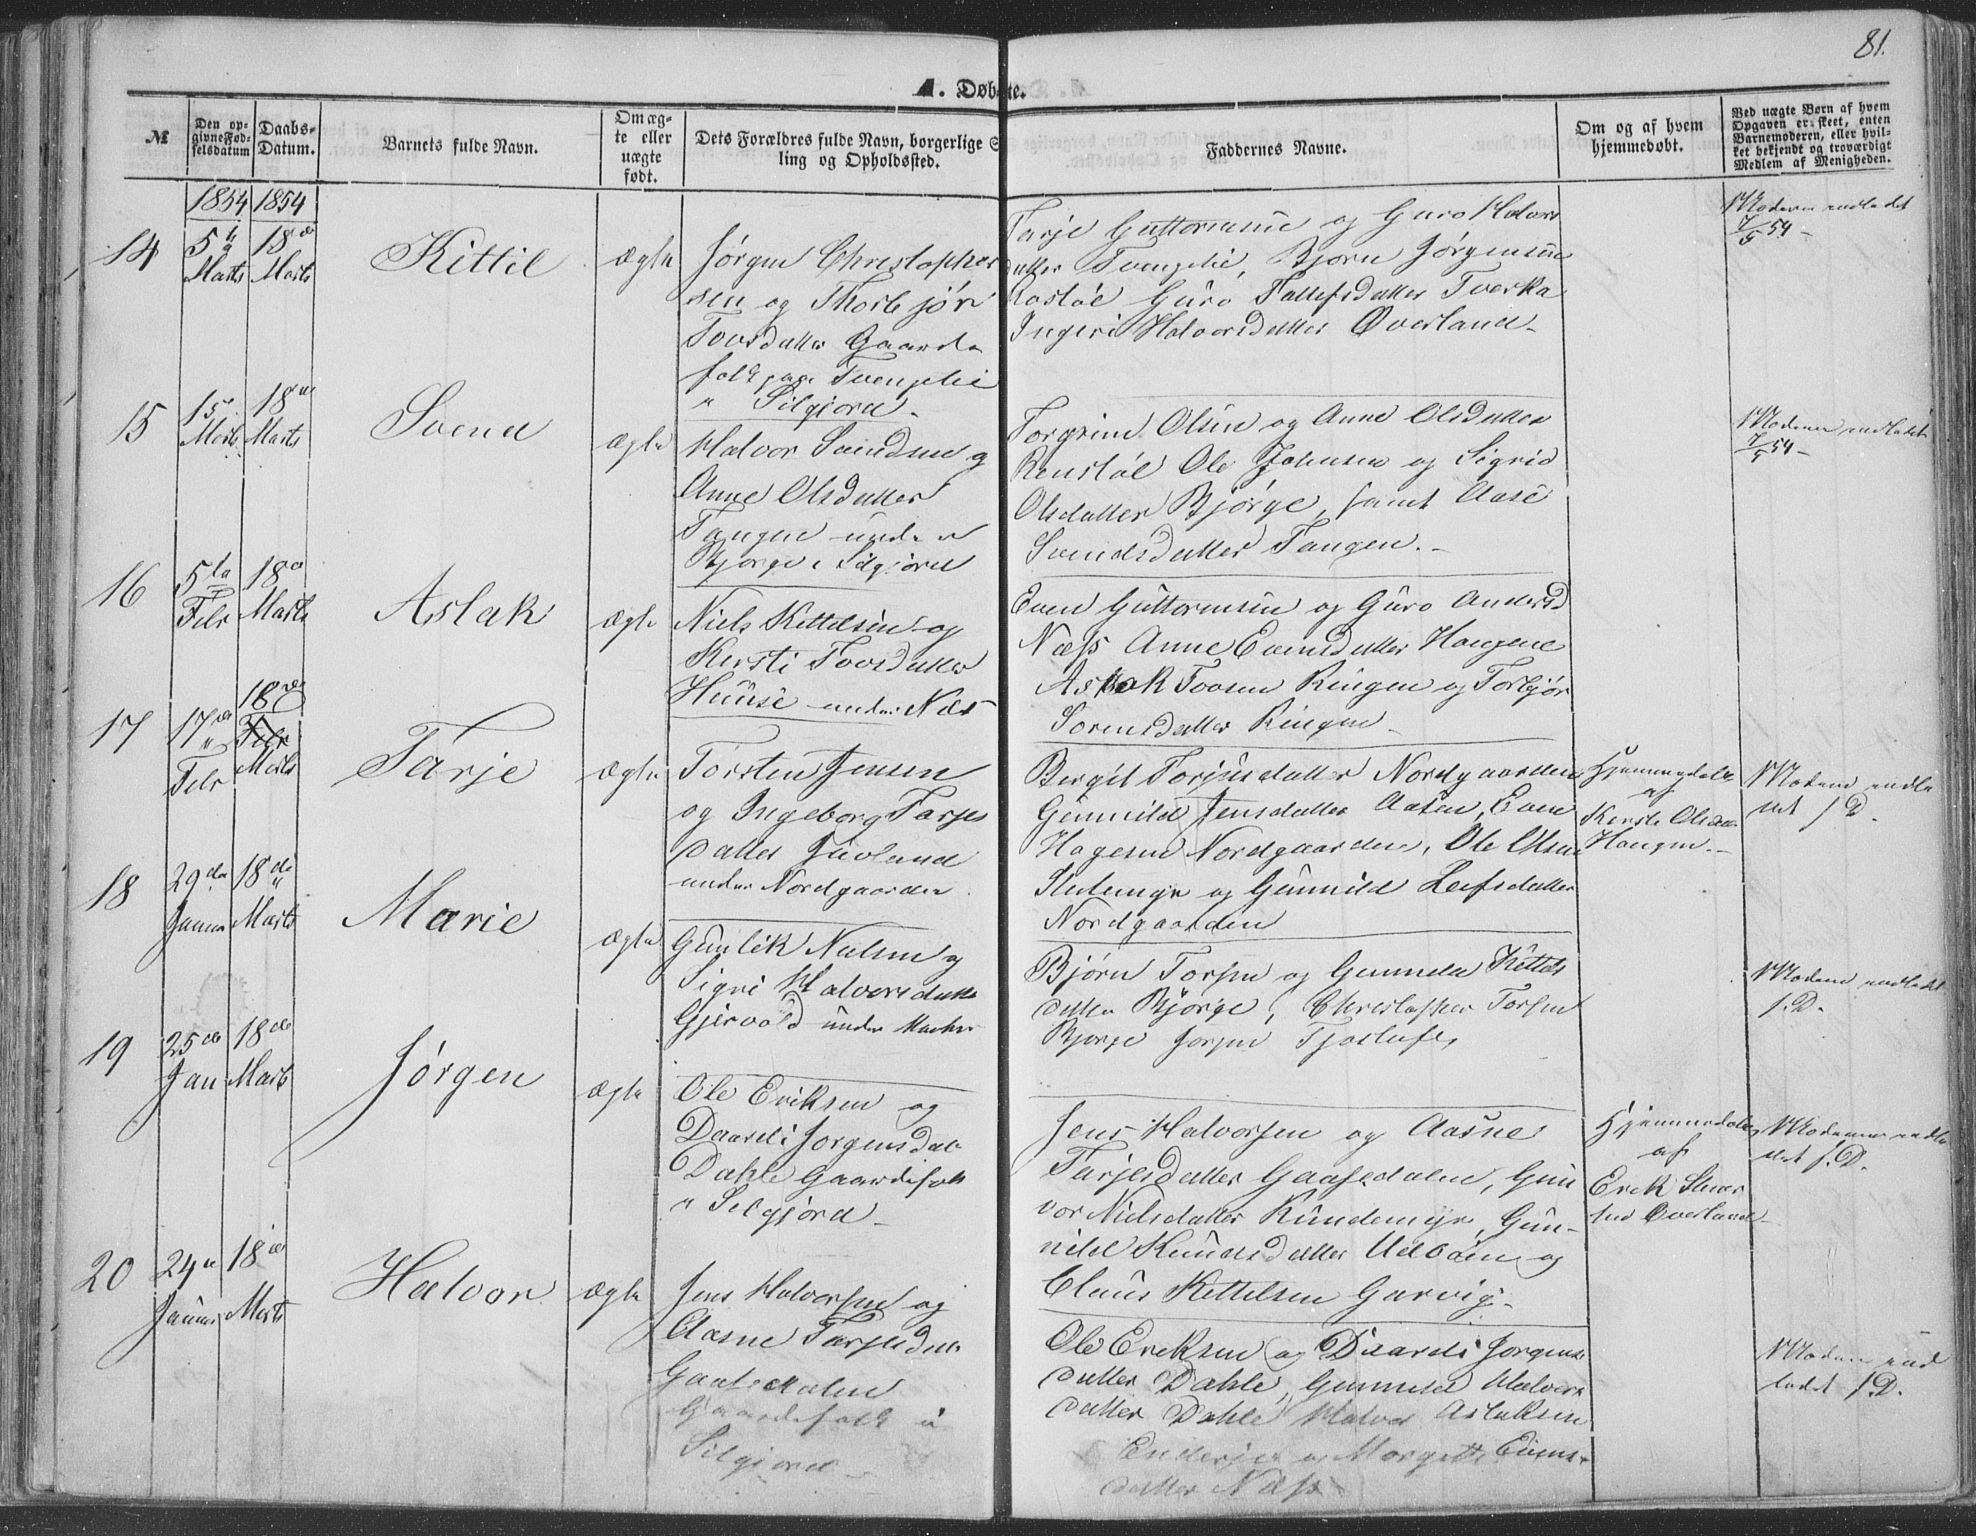 81.
A. Døbte.
№
Den opgivne Fødselsdatum
Daabs-Datum.
Barnets fulde Navn.
Om ægte eller uægte født.
Dets Forældres fulde Navn, borgerlige S
ling og Opholdssted.
Faddernes Navne.
Om og af hvem
hjemmedøbt.
Ved uægte Børn af hvem
Opgaven er skeet, enten
Barnemoderen, eller hvil-
ket bekjendt og troværdigt
Medlem af Menigheden.
1854 1854
14
5te Marts
18de Marts
Kittil
ægte
Jørgen Christopher
sen og Thorbjør
Tovsdatter Gaards
folk paa Tvengelie
Silgjord
Tarje Guttormsen og Guro Halvors
datter Tvengelie, Bjørn Jørgensen
Guro Tallefsdatter Tveka
Ingeri Halvorsdatter Øverland
Moderen indledet
7/5 54
15
15 Marts
18de Marts
Svend
ægte
Halvor Svendsen og
Anne Olsdatter
Tangen under
Bjørge i Silgjord
Torgrim Olsen og Anne Olsdatter
Ole Johnsen og Sigrid
Olsdatter Bjørge, samt Aase
Svendsdatter Tangen.
Moderen indledet
7/5 54
16
5te Febr
18de Marts
Aslak
ægte
Niels Kittelsen og
Kersti Tovsdatter
Huuse under Næs
Even Guttormsen og Guro Andersd
Næss Anne Evensdatter Haugene
Aslak Tovsen Ringen og Torbjør
Sorensdatter Ringen
17
17de Febr
18de Febr
Marts
Tarje
ægte
Torsten Jensen
og Ingeborg Tarjes
datter Juvland
under Nordgaarden
Bergit Torjusdatter Nordgaarden
Gunnild Jensdatter Aasen, Even
Hagesen Nordgaarden, Ole Olsen
og Gunnild Leifsdatter
Nordgaarden
Hjemmedøbt
af
Kersti Olsdr
Haugen.
Moderen indle
det s. D.
18
29de Januar
18de Marts
Marie
ægte
Gunlik Nielsen og
Sigri Halvorsdatter
Gjervold under
Bjørn Torsen og Gunnild Kittels
datter Bjørge, Christopher Torsen
Bjørge Jorgen
Moderen indledet
s. D.
19
25de Jan
18de Marts
Jørgen
ægte
Ole Eriksen og
Daardi Jorgensdat
Dahle Gaardsfolk
i Silgjord
Jens Halvorsen og Aasne
Tarjesdatter Gaasedalen, Gun
vor Nielsdatter Rundemyr, Gun-
nild Knudsdatter Udbøen og
Claus Kittelsen Garvig.
Hjemmedøbt
af
Erik
Øverland
Moderen indle
det s. D.
20
24de Januar
18de Marts
Halvor
ægte
Jens Halvorsen og
Aasne Tarjesdat
Gaasedalen
Gaardsfolk i
Silgjord
Ole Eriksen og Daardi Jorgens
datter Dahle, Gunnild Halvors
datter Dahle Halvor Aslaksen
og Margith Evens
datter Næss
Moderen ind
ledet s. D.